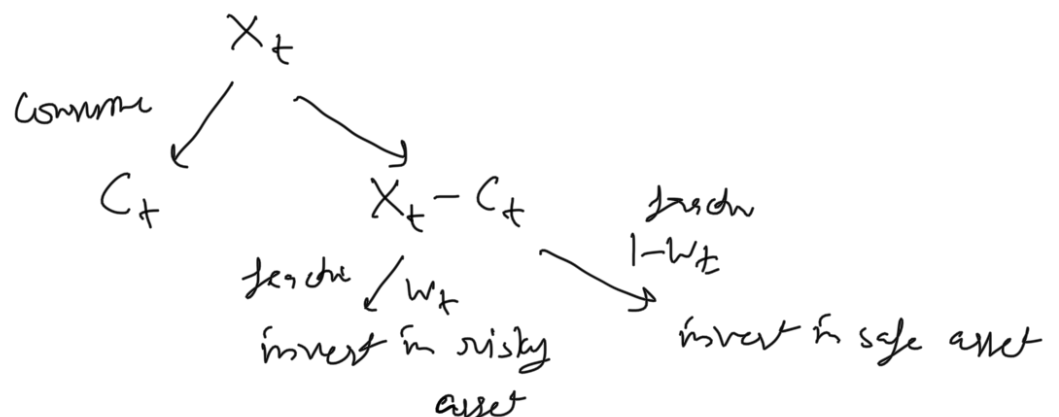 X_t
consume
C_t
X_t - C_t
fraction
1-W_t
fraction
W_t
invest in risky
asset
invest in safe asset